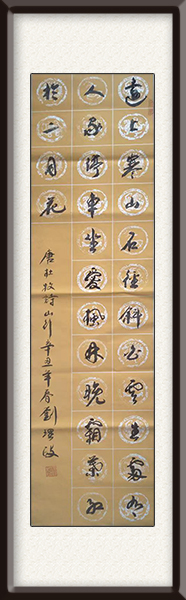 遠上寒山石徑斜白雲生處有
人家停車坐愛楓林晚霜葉紅
於二月花
唐杜牧詩山行辛丑年春劉